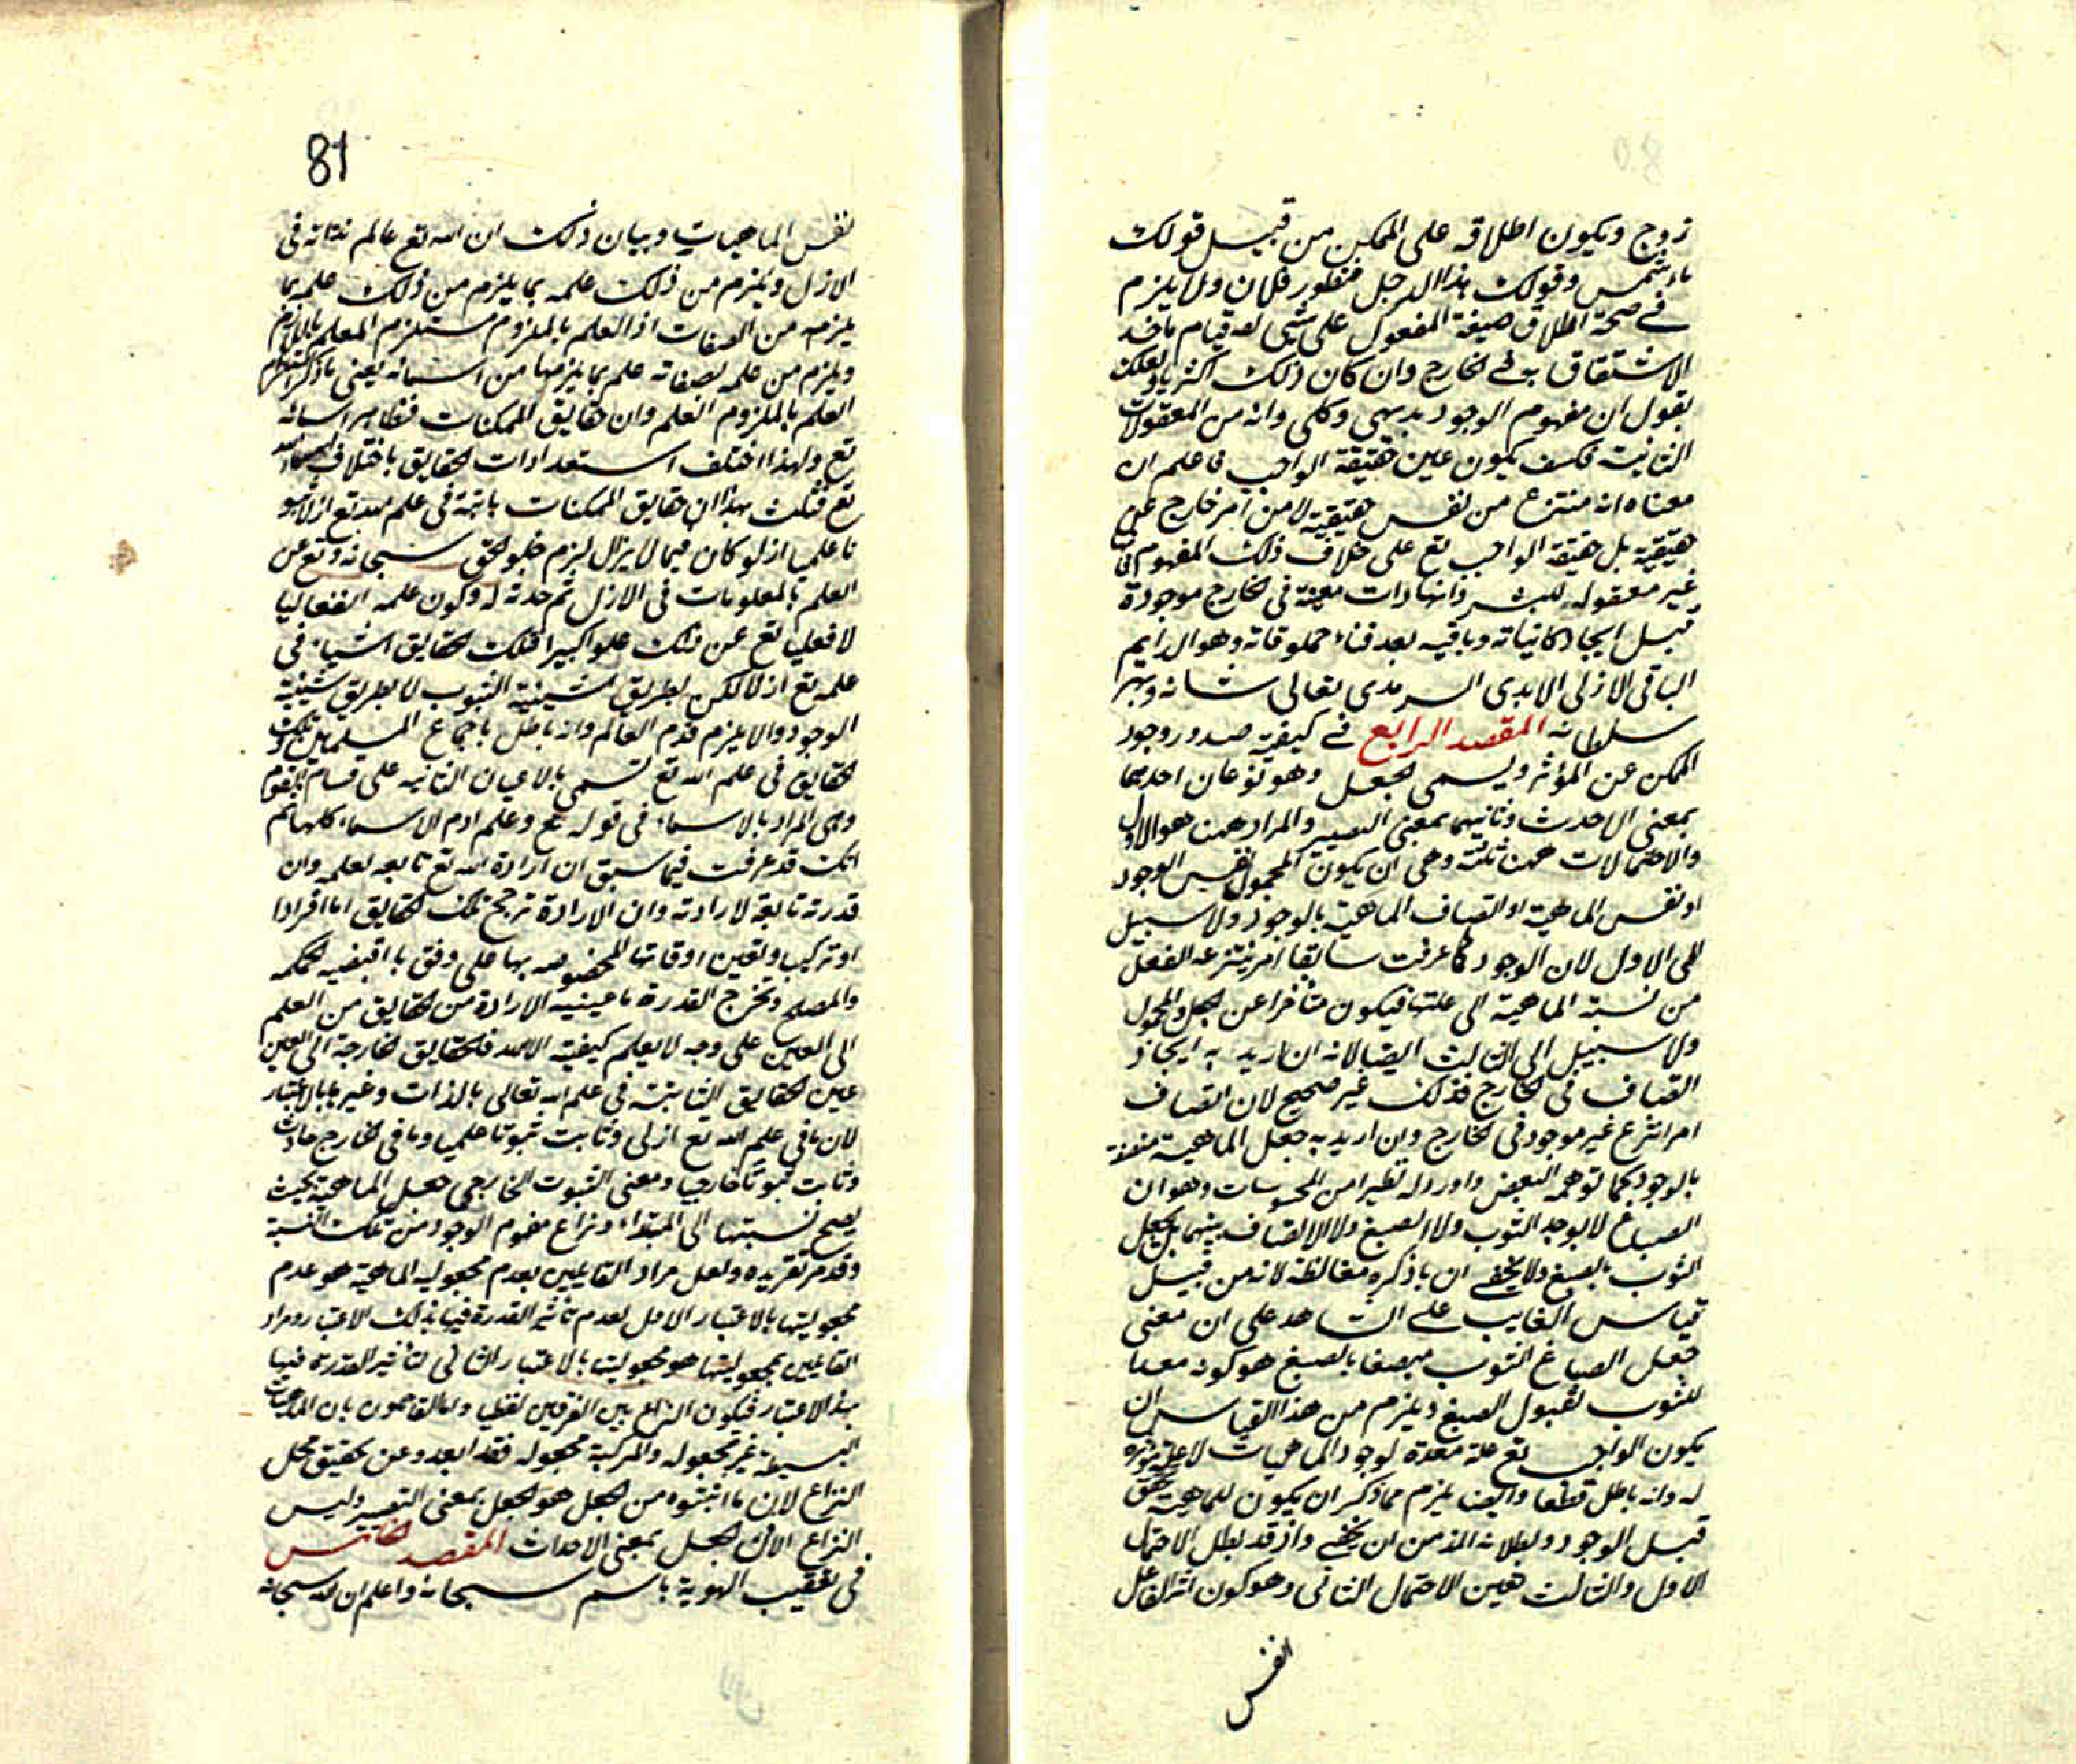 زوج ويكون اطلاقه على الممكن من قبيل قولك
ماء شمس وقولك هذا الرجل منظور فلان ولا يلزم
في صحة اطلاق صيغة المفعول على شيء له قيام ماخذ
الاشتقاق به في الخارج وان كان ذلك اكثريا ولعلك
تقول ان مفهوم الوجود بديهي وكلي وانه من المعقولات
الثانية فكيف يكون عين حقيقة الواجب فاعلم ان
معناه انه منتزع من نفس حقيقته لا من امر خارج عن
حقيقته بل حقيقة الواجب تع على خلاف ذلك المفهوم فانها
غير معقوله للبشر وانها ذات معينة في الخارج موجودة
قبل ايجاد كائناته وباقيه بعد فناء مخلوقاته وهو الدايم
الباقي الازلي الابدي السرمدي تعالى شانه وبهر
سلطانه المقصد الرابع في كيفية صدور وجود
الممكن عن المؤثر ويسمى الجعل وهو نوعان احدهما
بمعنى الاحدث وثانيهما بمعنى التصيير والمراد ههنا هو الاول
والاحتمالات ههنا ثلثة وهي ان يكون المجعول نفس الوجود
او نفس الماهية او اتصاف الماهية بالوجود ولا سبيل
الى الاول لان الوجود كما عرفت سابقا امر ينتزعه العقل
من نسبة الماهية الى علتها فيكون متأخرا عن الجعل والمجعول
ولا سبيل الى الثالث ايضا لانه ان اريد به ايجاد
اتصاف في الخارج فذلك غير صحيح لان اتصاف
امر انتزاع غير موجود في الخارج وان اريد به جعل الماهية متصفة
بالوجود كما توهمه البعض واورد له نظيرا من المحسوسات وهو ان
الصباغ لا يوجد الثوب ولا الصبغ ولا الاتصاف بينهما بل يجعل
الثوب بالصبغ ولا يخفى ان ما ذكره مغالطة لانه من قبيل
قياس الغايب على الشاهد على ان معنى
جعل الصباغ الثوب مصبغا بالصبغ هو كونه معدا
للثوب لقبول الصبغ ويلزم من هذا القياس ان
يكون الواجب تع علة معدة لوجود الماهيات لا علة مؤثره
له وانه باطل قطعا وايضا يلزم مما ذكر ان يكون للماهية تحقق
قبل الوجود وبطلانه اظهر من ان يخفى واذ قد بطل الاحتمال
الاول والثالث تعين الاحتمال الثاني وهو كون اثر الفاعل
انفس
81
نفس الماهيات وبيان ذلك ان الله تع عالم بذاته في
الازل ويلزم من ذلك علمه بما يلزم من ذلك علمه بما
يلزمه من الصفات اذ العلم بالملزوم مستلزم العلم باللازم
ويلزم من علمه لصفاته علم بما يلزمها من اسمائه يعني ما ذكر استلزام
العلم بالملزوم العلم وان حقايق الممكنات مظاهر اسمائه
تع ولهذا اختلف استعدادات الحقايق باختلاف اسماء الله
تع فثبت بهذا ان حقايق الممكنات ثابتة في علم الله تع ازلا ثبو
تا علميا اذ لو كان فيما لا يزال لزم خلو الحق سبحانه وتع عن
العلم بالمعلومات في الازل ثم حدثه له وكون علمه انفعاليا
لا فعليا تع عن ذلك علوا كبيرا فتلك الحقايق اشياء في
علمه تع ازلا لكن بطريق شيئية الثبوت لا بطريق شيئية
الوجود والا يلزم قدم العالم وانه باطل باجماع المسلمين وتلك
الحقايق في علم الله تع تسمى بالاعيان الثانيه على لسان القوم
وهي المراد بالاسماء في قوله تع وعلم ادم الاسماء كلها ثم
انك قد عرفت فيما سبق ان ارادة الله تع تابعه لعلمه وان
قدرته تابعة لارادته وان الارادة ترجح تلك الحقايق اما افرادا
او تركيبا وتعين اوقاتها المخصوصه بها على وفق ما اقتضيه الحكمه
والمصلح وتخرج القدرة ما عينيه الارادة من الحقايق من العلم
الى العين على وجه لا يعلم كيفيته الا الله فالحقايق الخارجة الى العين
عين الحقايق الثابتة في علم الله تعالى بالذات وغيرها بالاعتبار
لان ما في علم الله تع ازلي وثابت ثبوتا علميا وما في الخارج حادث
وثابت ثبوتا خارجيا ومعنى الثبوت الخارجي جعل الماهية بحيث
يصح نسبتها الى المبتداء ونزاع مفهوم الوجود من تلك النسبة
وقد مر تقريره ولعل مراد القايلين بعدم مجعوليه الماهية هو عدم
مجعوليتها بالاعتبار الاول لعدم تاثير القدرة فيها بذلك الاعتبار ومراد
القايلين بمجعوليتها هو مجعوليتها بالاعتبار الثاني لتأثير القدرة فيها
بهذا الاعتبار فيكون النزاع بين الفرقين لفظيا واما القايلون بان الماهيات
البسيطة غير مجعوله والمركبة مجعوله فقد ابعدوا عن تحقيق محل
النزاع لان ما اثبتوه من الجعل هو الجعل بمعنى التصيير وليس
النزاع الا في الجعل بمعنى الاحداث المقصد الخامس
في تعقيب الهوية باسم سبحانه واعلم ان الله سبحانه